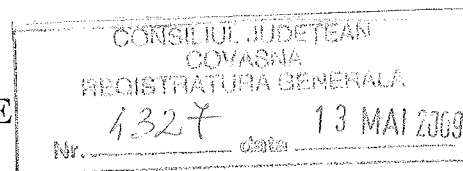 CONSILIUL JUDEŢEAN
COVASNA
REGISTRATURA GENERALĂ
E
Nr. 4327 data 13 MAI 2009